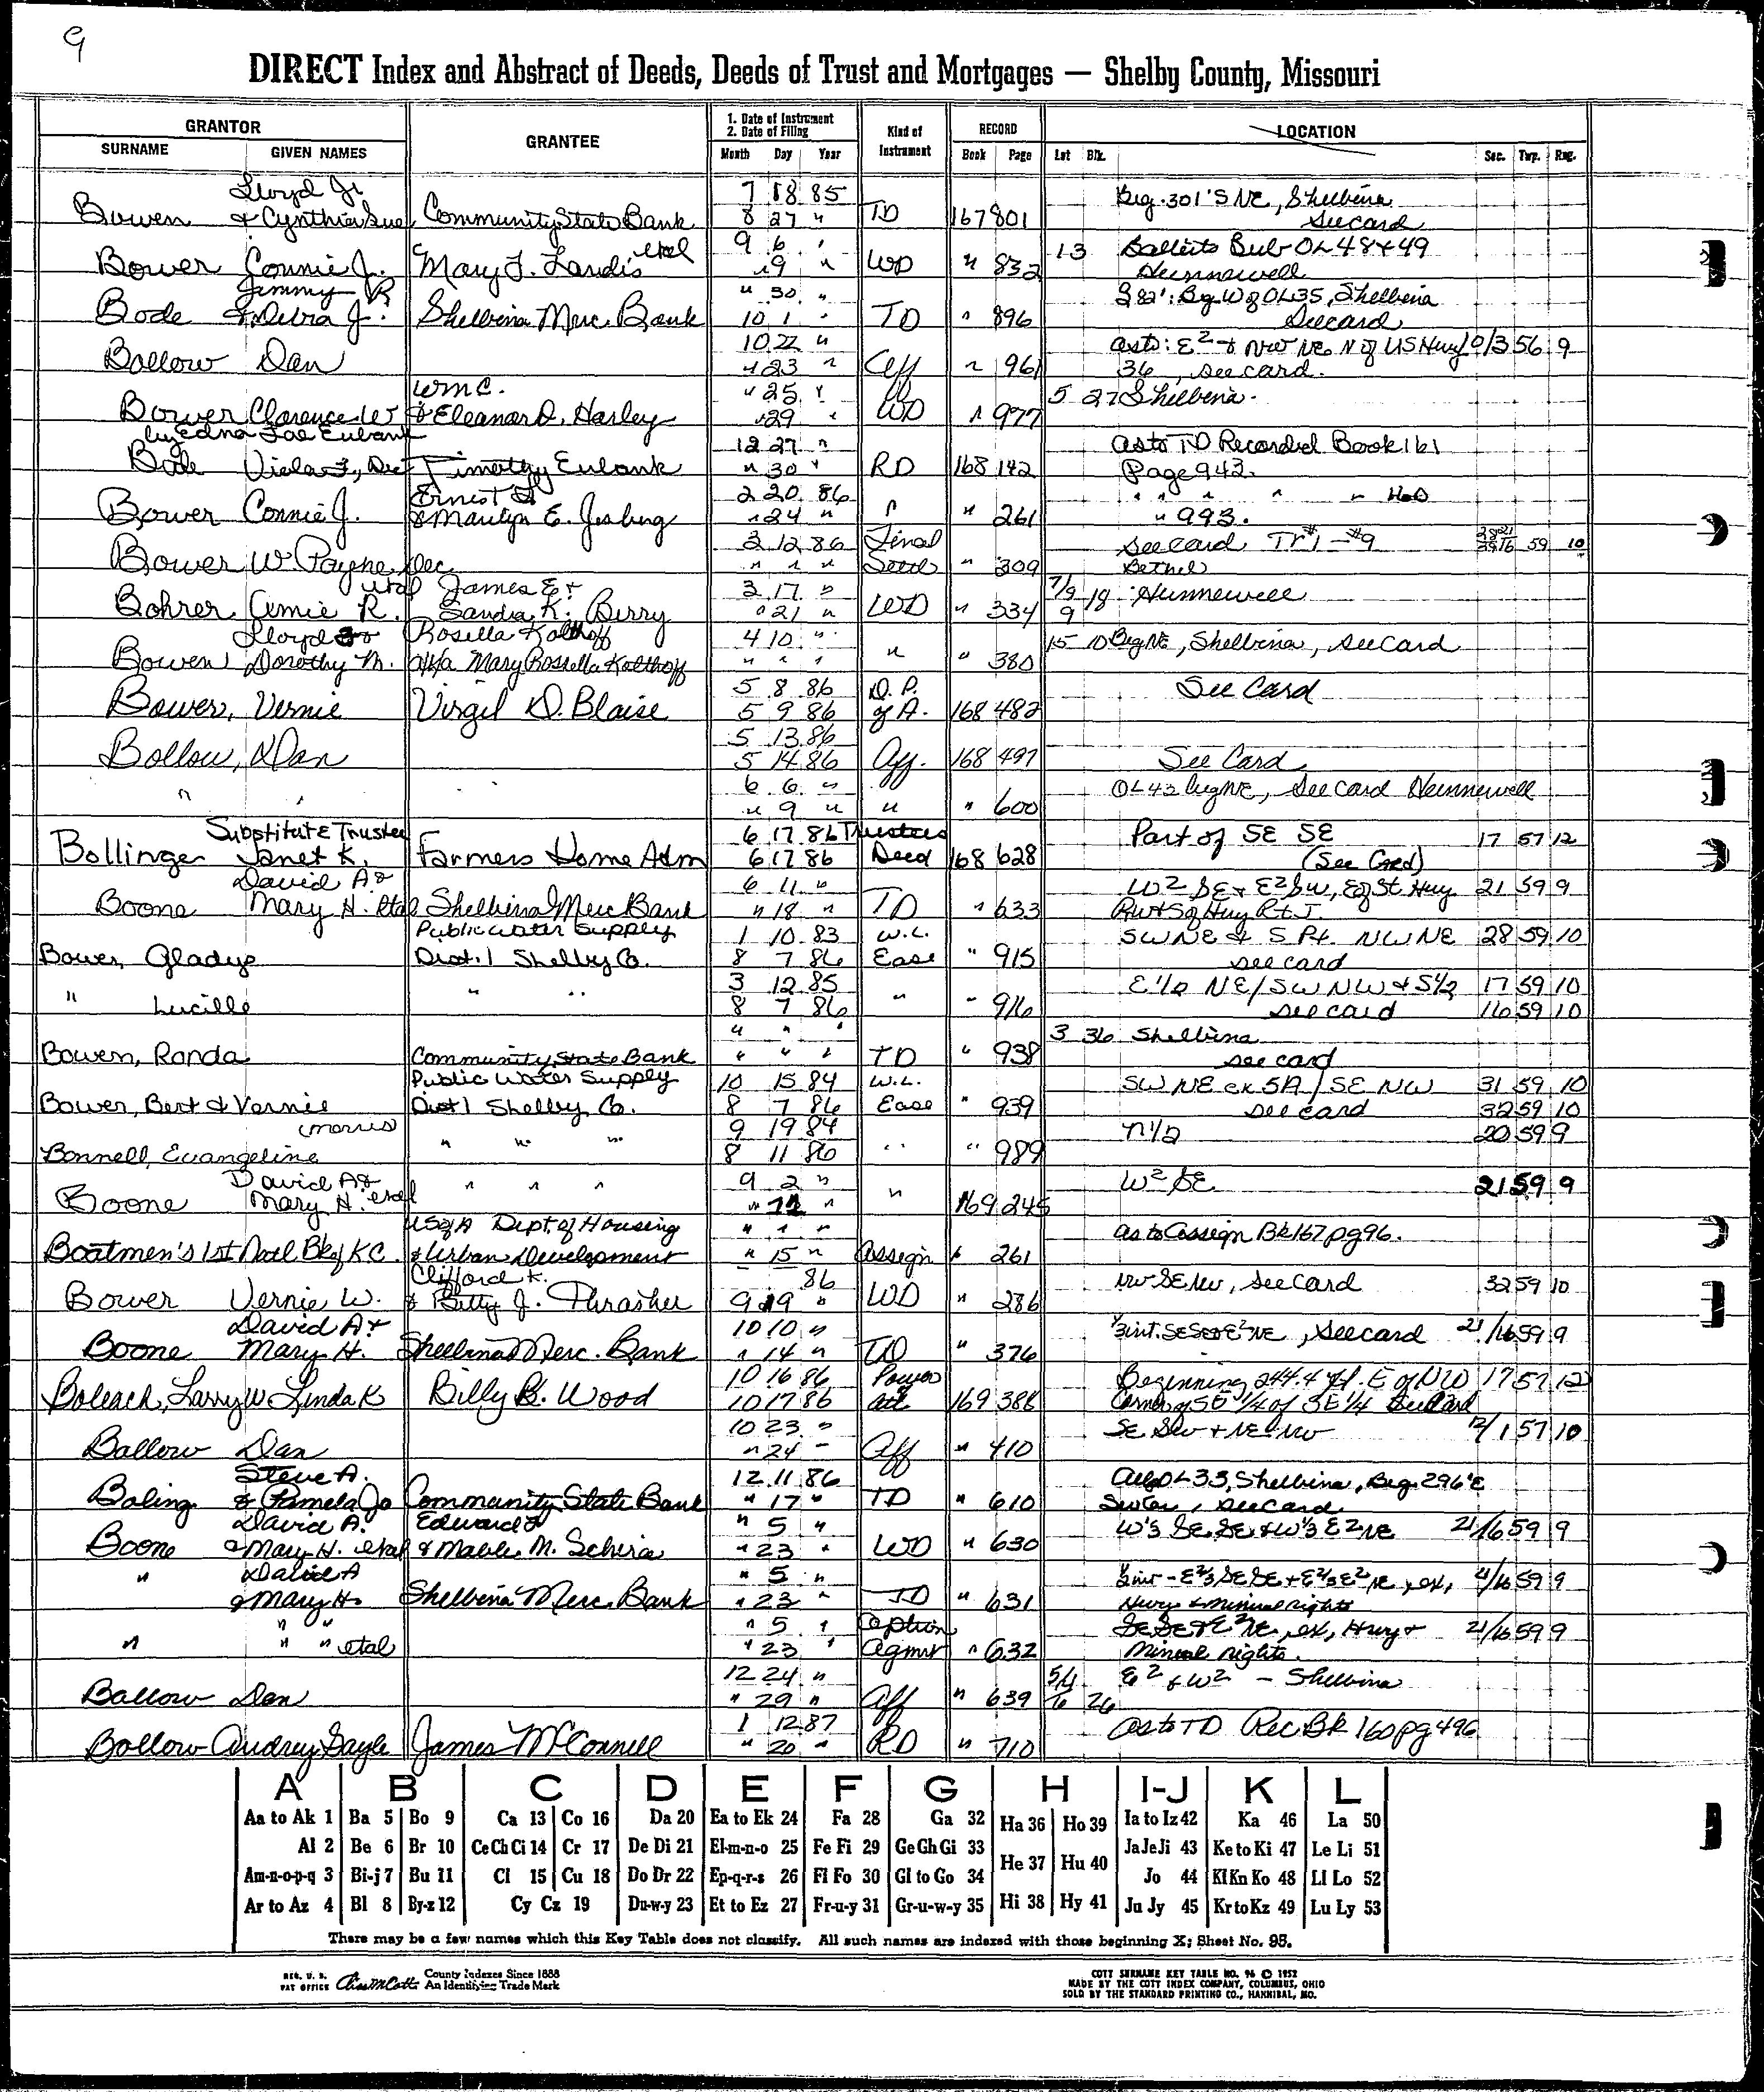 9
DIRECT Index and Abstract of Deeds, Deeds of Trust and Mortgages — Shelby County, Missouri
GRANTOR
SURNAME GIVEN NAMES
GRANTEE
1. Date of Instrument
2. Date of Filing
Month Day Year
Kind of Instrument
RECORD
Book Page
LOCATION
Lot Blk. Sec. Twp. Rng.
Lloyd Jr 7 18 85 Beg. 301' S NE, Shelbina
Bowen & Cynthia Sue Community State Bank 8 27 " TD 167 801 See card
etal 9 6 " 13 Sub OL 48 & 49
Bower Connie J. Mary F. Landis " 9 " WD " 832 Hunnewell
Jimmy R " 30 " S 82': Beg W of OL 35, Shelbina
Bode & Debra J. Shelbina Merc. Bank 10 1 " TD " 896 See card
10 22 " as to: E² & NW NE N of US Hwy 10/3 56 9
Bollow Dan " 23 " Aff " 961 36, see card.
Wm C. " 25 " 5 27 Shelbina.
Bower Clarence W & Eleanor D. Harley " 29 " WD " 977
by Edna Fae Eubank 12 27 " as to TD Recorded Book 161
Bode Viola F, Dec Timothy Eubank " 30 " RD 168 142 Page 943.
Ernest F 2 20 86 " " " " "
Bower Connie J. & Marilyn E. " 24 " " " 261 " 993.
3 12 86 Final See card, Tr #1 - #9 59 10
Bower W Payne, Dec. " " " Settl " 309 Bethel
etal James E & 3 17 " 7/9 18 Hunnewell
Bohrer Amie R. Sandra K. Berry " 21 " WD " 334 9
Lloyd Jr & Rosella Kolthoff 4 10 " 15 10 Beg NE, Shelbina, see card
Bowen Dorothy M. a/k/a Mary Rossella Kolthoff " " " " " 380
5 8 86 D. P. See Card
Bower, Vernie Virgil D. Blaise 5 9 86 of A. 168 482
5 13 86
Bollow, Dan 5 14 86 Aff. 168 497 See Card
6 6 " OL 43 Beg NE, See card Hunnewell
" " " 9 " " " 600
Substitute Trustee 6 17 86 Trustees Part of SE SE 17 57 12
Bollinger Janet K. Farmers Home Adm 6 17 86 Deed 168 628 (See Card)
David A & 6 11 " W² SE & E² SW, E of St. Hwy 21 59 9
Boone Mary H. etal Shelbina Merc Bank " 18 " TD " 633 & S of Hwy Rt J.
Public Water Supply 1 10 83 W.L. SW NE & S Pt. NW NE 28 59 10
Bower, Gladys Dist. 1 Shelby Co. 8 7 86 Ease " 915 see card
3 12 85 E 1/2 NE/SW NW & S 1/2 17 59 10
" Lucille " " 8 7 86 " " 916 see card 16 59 10
" " " 3 36 Shelbina
Bowen, Ronda Community State Bank " " " TD " 938 see card
Public Water Supply 10 15 84 W.L. SW NE ex 5A / SE NW 31 59 10
Bower, Bert & Vernie Dist 1 Shelby Co. 8 7 86 Ease " 939 see card 32 59 10
(Morris 9 19 84 N 1/2 20 59 9
Bonnell, Evangeline " " " 8 11 86 " " 989
David A & 9 2 " W² SE 21 59 9
Boone Mary H. etal " " " " 12 " " 169 245
US of A Dept. of Housing " " " as to Assign Bk 167 pg 96.
Boatmen's 1st Natl Bk of KC & Urban Development " 15 " Assign " 261
Clifford K. 86 NW SE NW, see card 32 59 10
Bower Vernie W. & Betty J. Thrasher 9 19 " WD " 286
David A & 10 10 " 1/3 int. SE SE & E² NE, see card 21/16 59 9
Boone Mary H. Shelbina Merc. Bank " 14 " TD " 376
10 16 86 Power Beginning 244.4 ft. E of NW 17 57 12
Boleach, Larry W Linda K Billy B. Wood 10 17 86 Att 169 388 Corner of SE 1/4 of SE 1/4 See Card
10 23 " SE SW & NE NW 12/1 57 10
Ballow Dan " 24 " Aff " 410
Steve A. 12 11 86 OL 33, Shelbina, Beg. 296' E
Boling & Pamela Jo Community State Bank " 17 " TD " 610 SW Cor, see card
David A. Edward F " 5 " W⅓ SE SE & W⅓ E² NE 21/16 59 9
Boone & Mary H. etal & Mable M. Schira " 23 " WD " 630
" David A " 5 " E⅔ SE SE & E⅔ E² NE, ex, 21/16 59 9
& Mary H. Shelbina Merc. Bank " 23 " TD " 631 Hwy & Mineral rights
" " " 5 " Option SE SE & E² NE, ex, Hwy & 21/16 59 9
" " " etal " 23 " Agmt " 632 mineral rights.
12 24 " 5/4 E² & W² - Shelbina
Ballow Dan " 29 " Aff " 639 6 26
1 12 87 as to TD Rec Bk 160 pg 496
Bollow Audrey Gayle James McConnell " 20 " RD " 710
A B C D E F G H I-J K L
Aa to Ak 1 Ba 5 Bo 9 Ca 13 Co 16 Da 20 Ea to Ek 24 Fa 28 Ga 32 Ha 36 Ho 39 Ia to Iz 42 Ka 46 La 50
Al 2 Be 6 Br 10 Ce Ch Ci 14 Cr 17 De Di 21 El-m-n-o 25 Fe Fi 29 Ge Gh Gi 33 He 37 Hu 40 Ja Je Ji 43 Ke to Ki 47 Le Li 51
Am-n-o-p-q 3 Bi-j 7 Bu 11 Cl 15 Cu 18 Do Dr 22 Ep-q-r-s 26 Fl Fo 30 Gl to Go 34 Jo 44 Kl Kn Ko 48 Ll Lo 52
Ar to Az 4 Bl 8 By-z 12 Cy Cz 19 Du-w-y 23 Et to Ez 27 Fr-u-y 31 Gr-u-w-y 35 Hi 38 Hy 41 Ju Jy 45 Kr to Kz 49 Lu Ly 53
There may be a few names which this Key Table does not classify. All such names are indexed with those beginning X; Sheet No. 95.
REG. U. S. PAT OFFICE County Indexes Since 1888 An Identifying Trade Mark
COTT SURNAME KEY TABLE NO. 96 © 1952
MADE BY THE COTT INDEX COMPANY, COLUMBUS, OHIO
SOLD BY THE STANDARD PRINTING CO., HANNIBAL, MO.